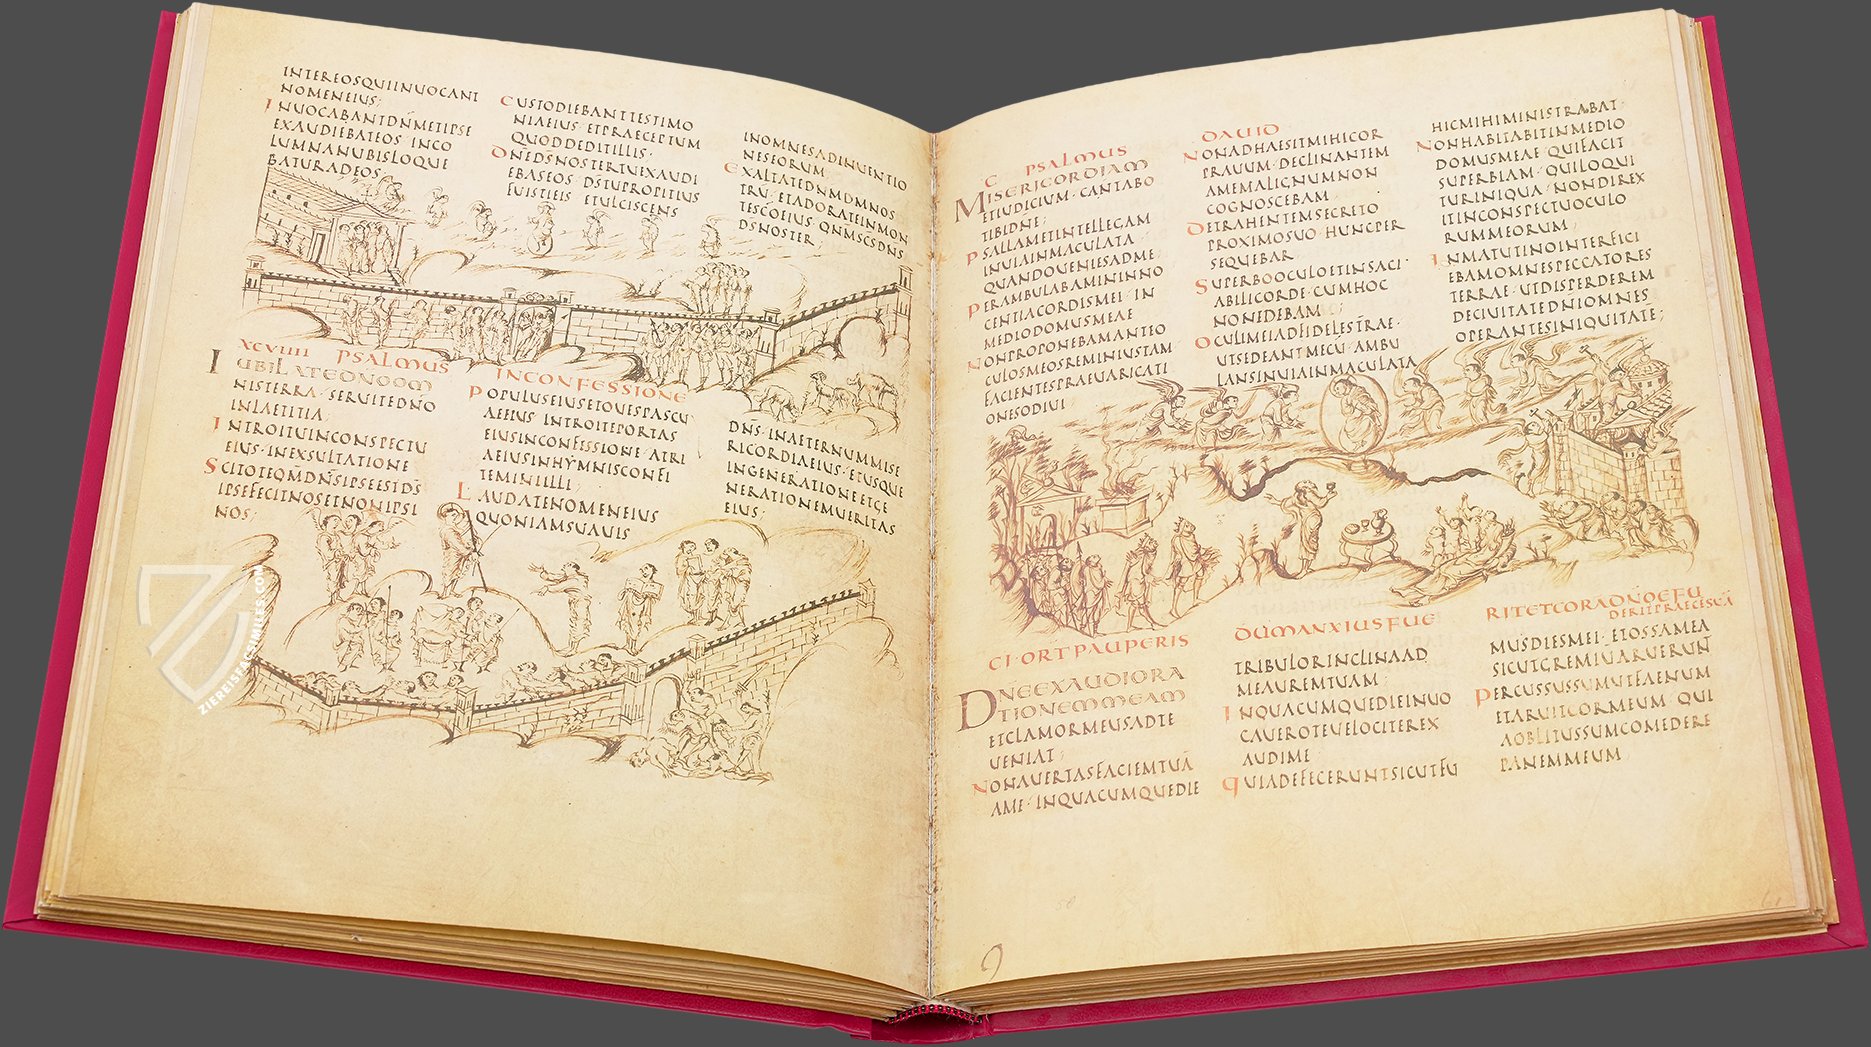 INTEREOSQUIINUOCANT
NOMENEIUS;
INUOCABANTDN̄METIPSE
EXAUDIEBATEOS INCO
LUMNANUBISLOQUE
BATURADEOS
CUSTODIEBANTTESTIMO
NIAEIUS·ETPRAECEPTUM
QUODDEDITILLIS·
DN̄EDS̄NOSTERTUEXAUDI
EBASEOS·DS̄TUPROPITIUS
FUISTIEIS ETULCISCENS
INOMNESADINUENTIO
NESEORUM;
EXALTATEDN̄MDM̄NOS
TRŪ·ETADORATEINMON
TESCŌEIUS·QNM̄SCS̄DN̄S
DS̄NOSTER;
XCVIIII PSALMUS
IUBILATEDN̄OOM
NISTERRA·SERUITEDN̄O
INLAETITIA;
INTROITUINCONSPECTU
EIUS·INEXSULTATIONE
SCITOTEQM̄DN̄SIPSEESTDS̄
IPSEFECITNOSETNONIPSI
NOS;
INCONFESSIONE
POPULUSEIUSETOUESPASCU
AEEIUS INTROITEPORTAS
EIUSINCONFESSIONE ATRI
AEIUSINHYMNISCONFI
TEMINIILLI;
LAUDATENOMENEIUS
QUONIAMSUAUIS
DN̄S·INAETERNUMMISE
RICORDIAEIUS·ETUSQUE
INGENERATIONEETGE
NERATIONEMUERITAS
EIUS;
ZIEREIS FACSIMILES.COM
C PSALMUS
DAUID
MISERICORDIAM
ETIUDICIUM·CANTABO
TIBIDN̄E;
PSALLAMETINTELLEGAM
INUIAINMACULATA
QUANDOUENIESADME;
PERAMBULABAMININNO
CENTIACORDISMEI·IN
MEDIODOMUSMEAE
NONPROPONEBAMANTEO
CULOSMEOSREMINIUSTAM
FACIENTESPRAEUARICATI
ONESODIUI;
NONADHAESITMIHICOR
PRAUUM·DECLINANTEM
AMEMALIGNUMNON
COGNOSCEBAM·
DETRAHENTEMSECRETO
PROXIMOSUO·HUNCPER
SEQUEBAR·
SUPERBOOCULOETINSACI
ABILICORDE·CUMHOC
NONEDEBAM;
OCULIMEIADFIDELESTRAE·
UTSEDEANTMECŪ·AMBU
LANSINUIAINMACULATA
HICMIHIMINISTRABAT·
NONHABITABITINMEDIO
DOMUSMEAE·QUIFACIT
SUPERBIAM·QUILOQUI
TURINIQUA·NONDIREX
ITINCONSPECTUOCULO
RUMMEORUM;
INMATUTINOINTERFICI
EBAMOMNESPECCATORES
TERRAE·UTDISPERDEREM
DECIUITATEDN̄IOMNES
OPERANTESINIQUITATE;
CI·ORTPAUPERIS
DŪMANXIUSFUE
RITETCORADNŌEFU
DERITPRAECESSUĀ
DN̄EEXAUDIORA
TIONEMMEAM
ETCLAMORMEUSADTE
UENIAT;
NONAUERTASFACIEMTUĀ
AME·INQUACUMQUEDIE
TRIBULORINCLINAAD
MEAUREMTUAM;
INQUACUMQUEDIEINUO
CAUEROTEUELOCITEREX
AUDIME
QUIADEFECERUNTSICUTFU
MUSDIESMEI·ETOSSAMEA
SICUTCREMIŪARUERUN̄
PERCUSSUSSUMUTFAENUM
ETARUITCORMEUM QUI
AOBLITUSSUMCOMEDERE
PANEMMEUM